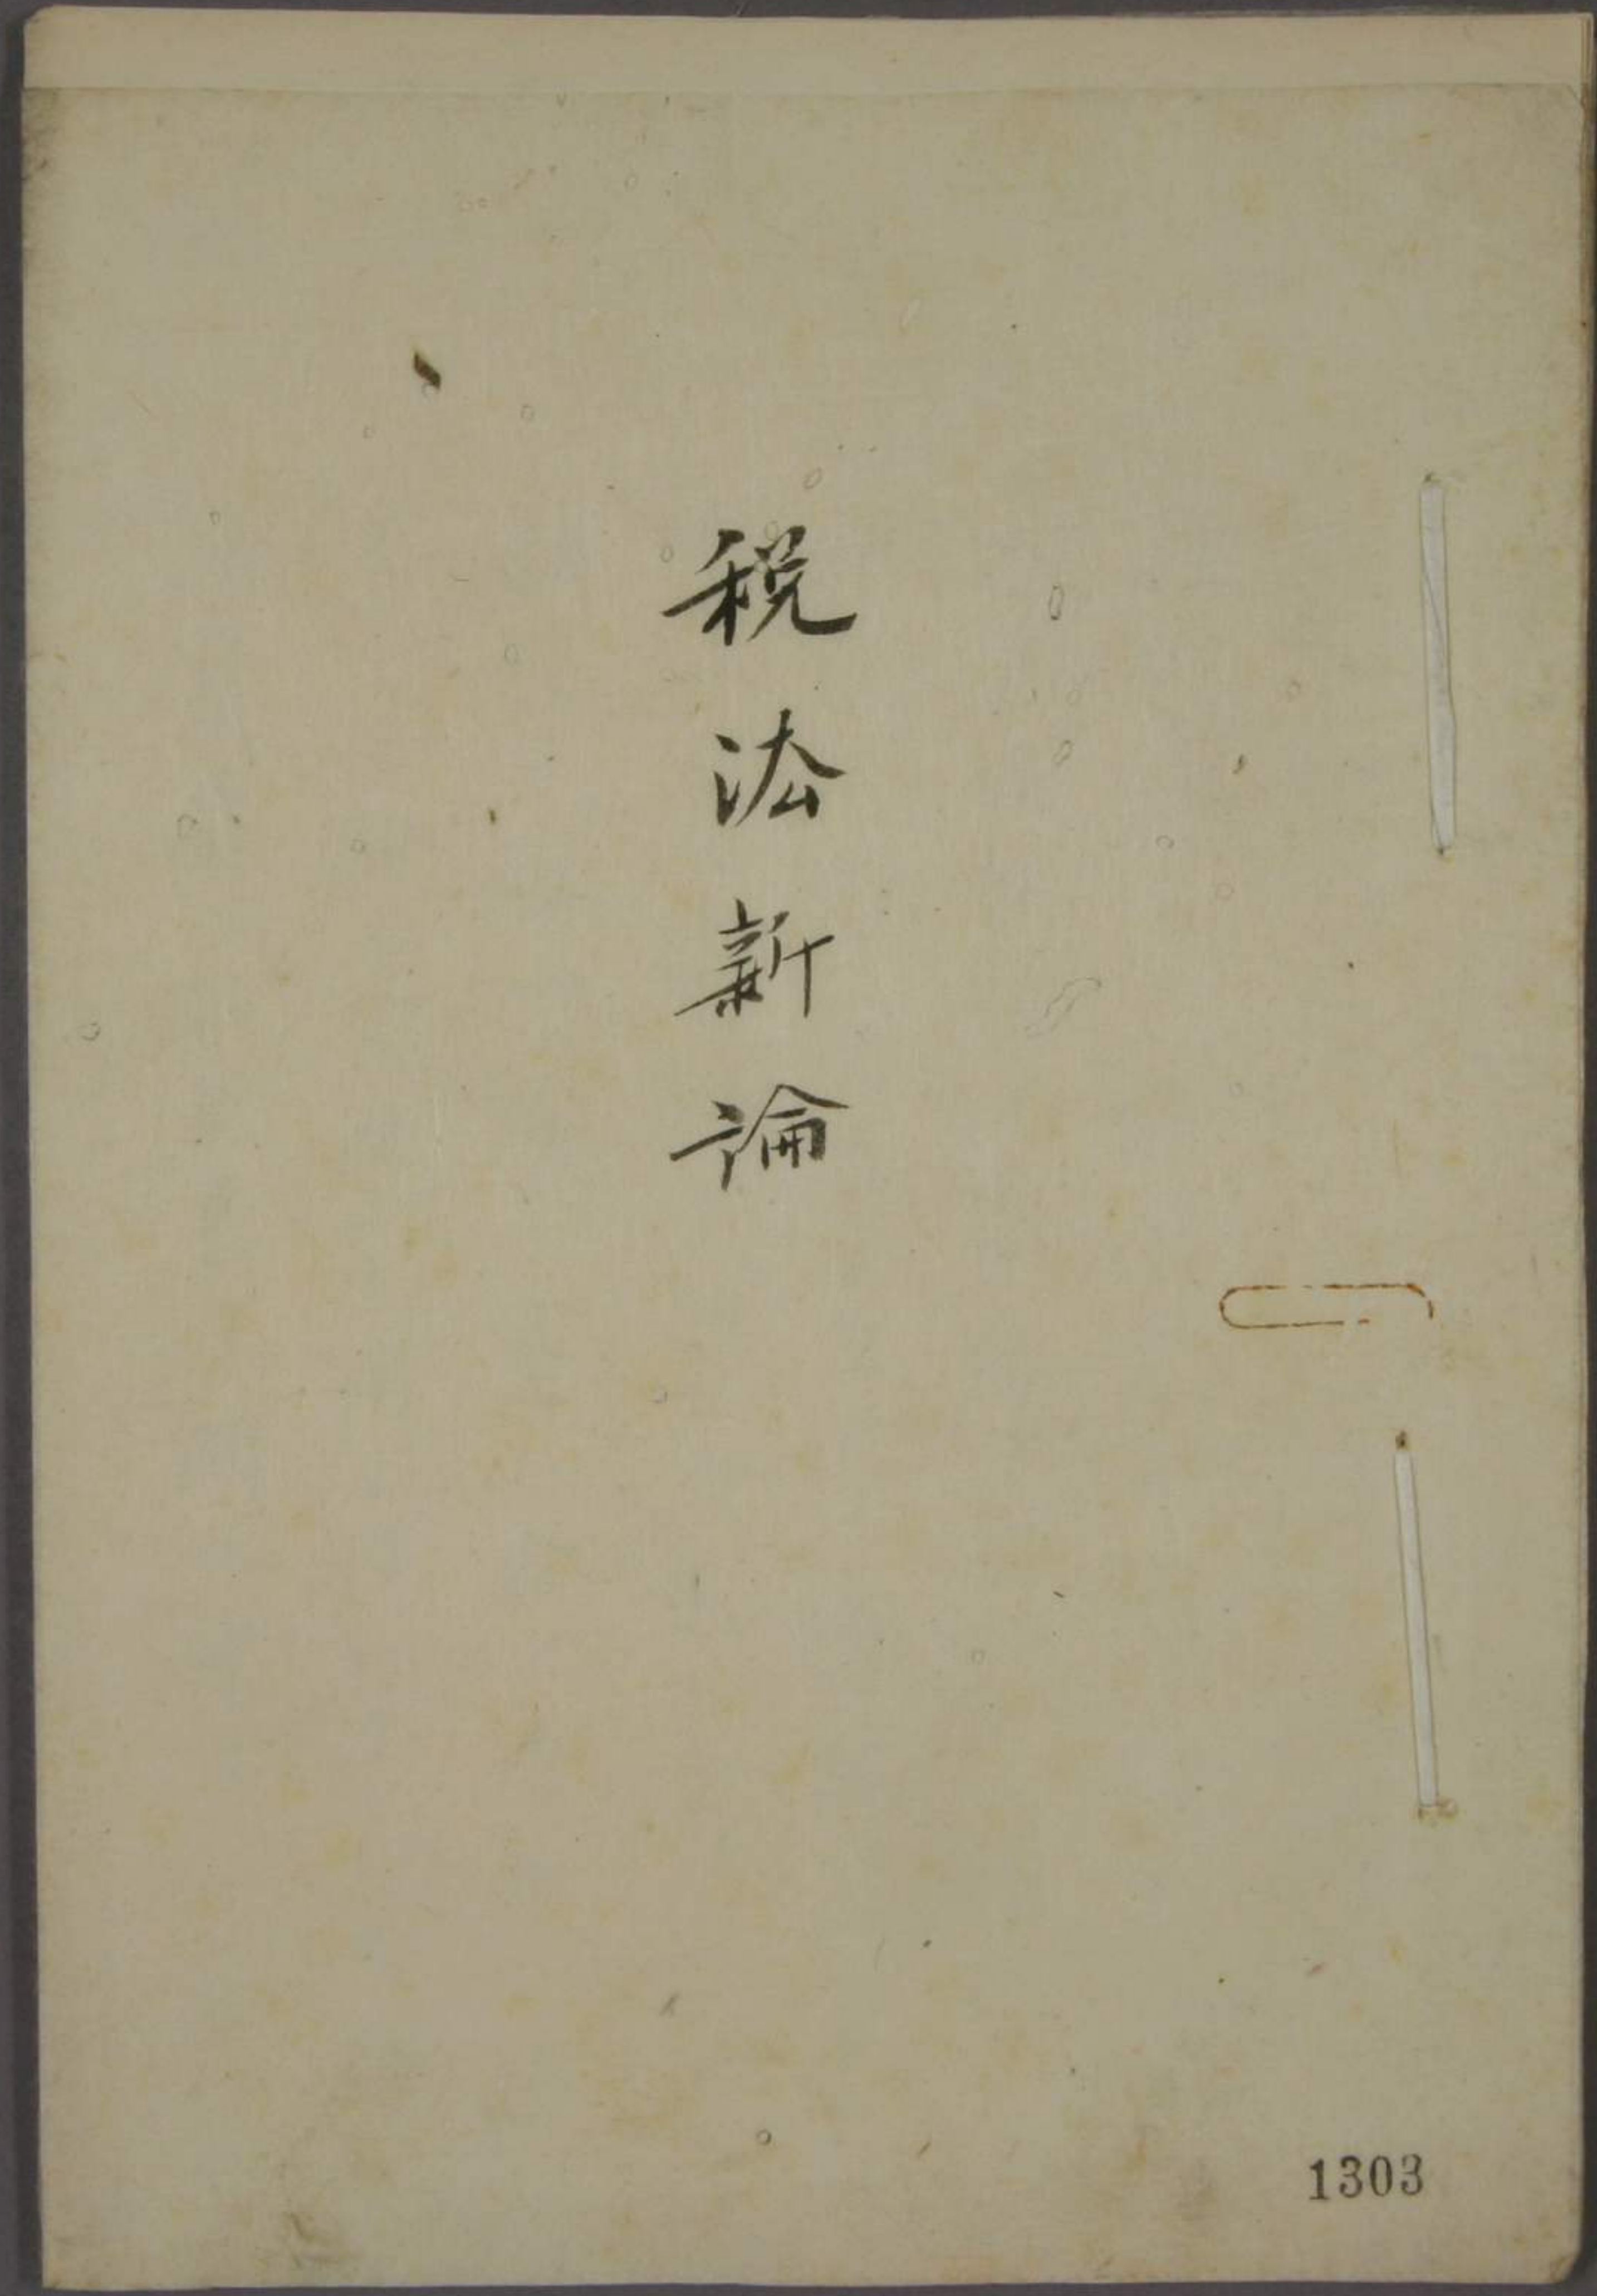 税法新論
1303